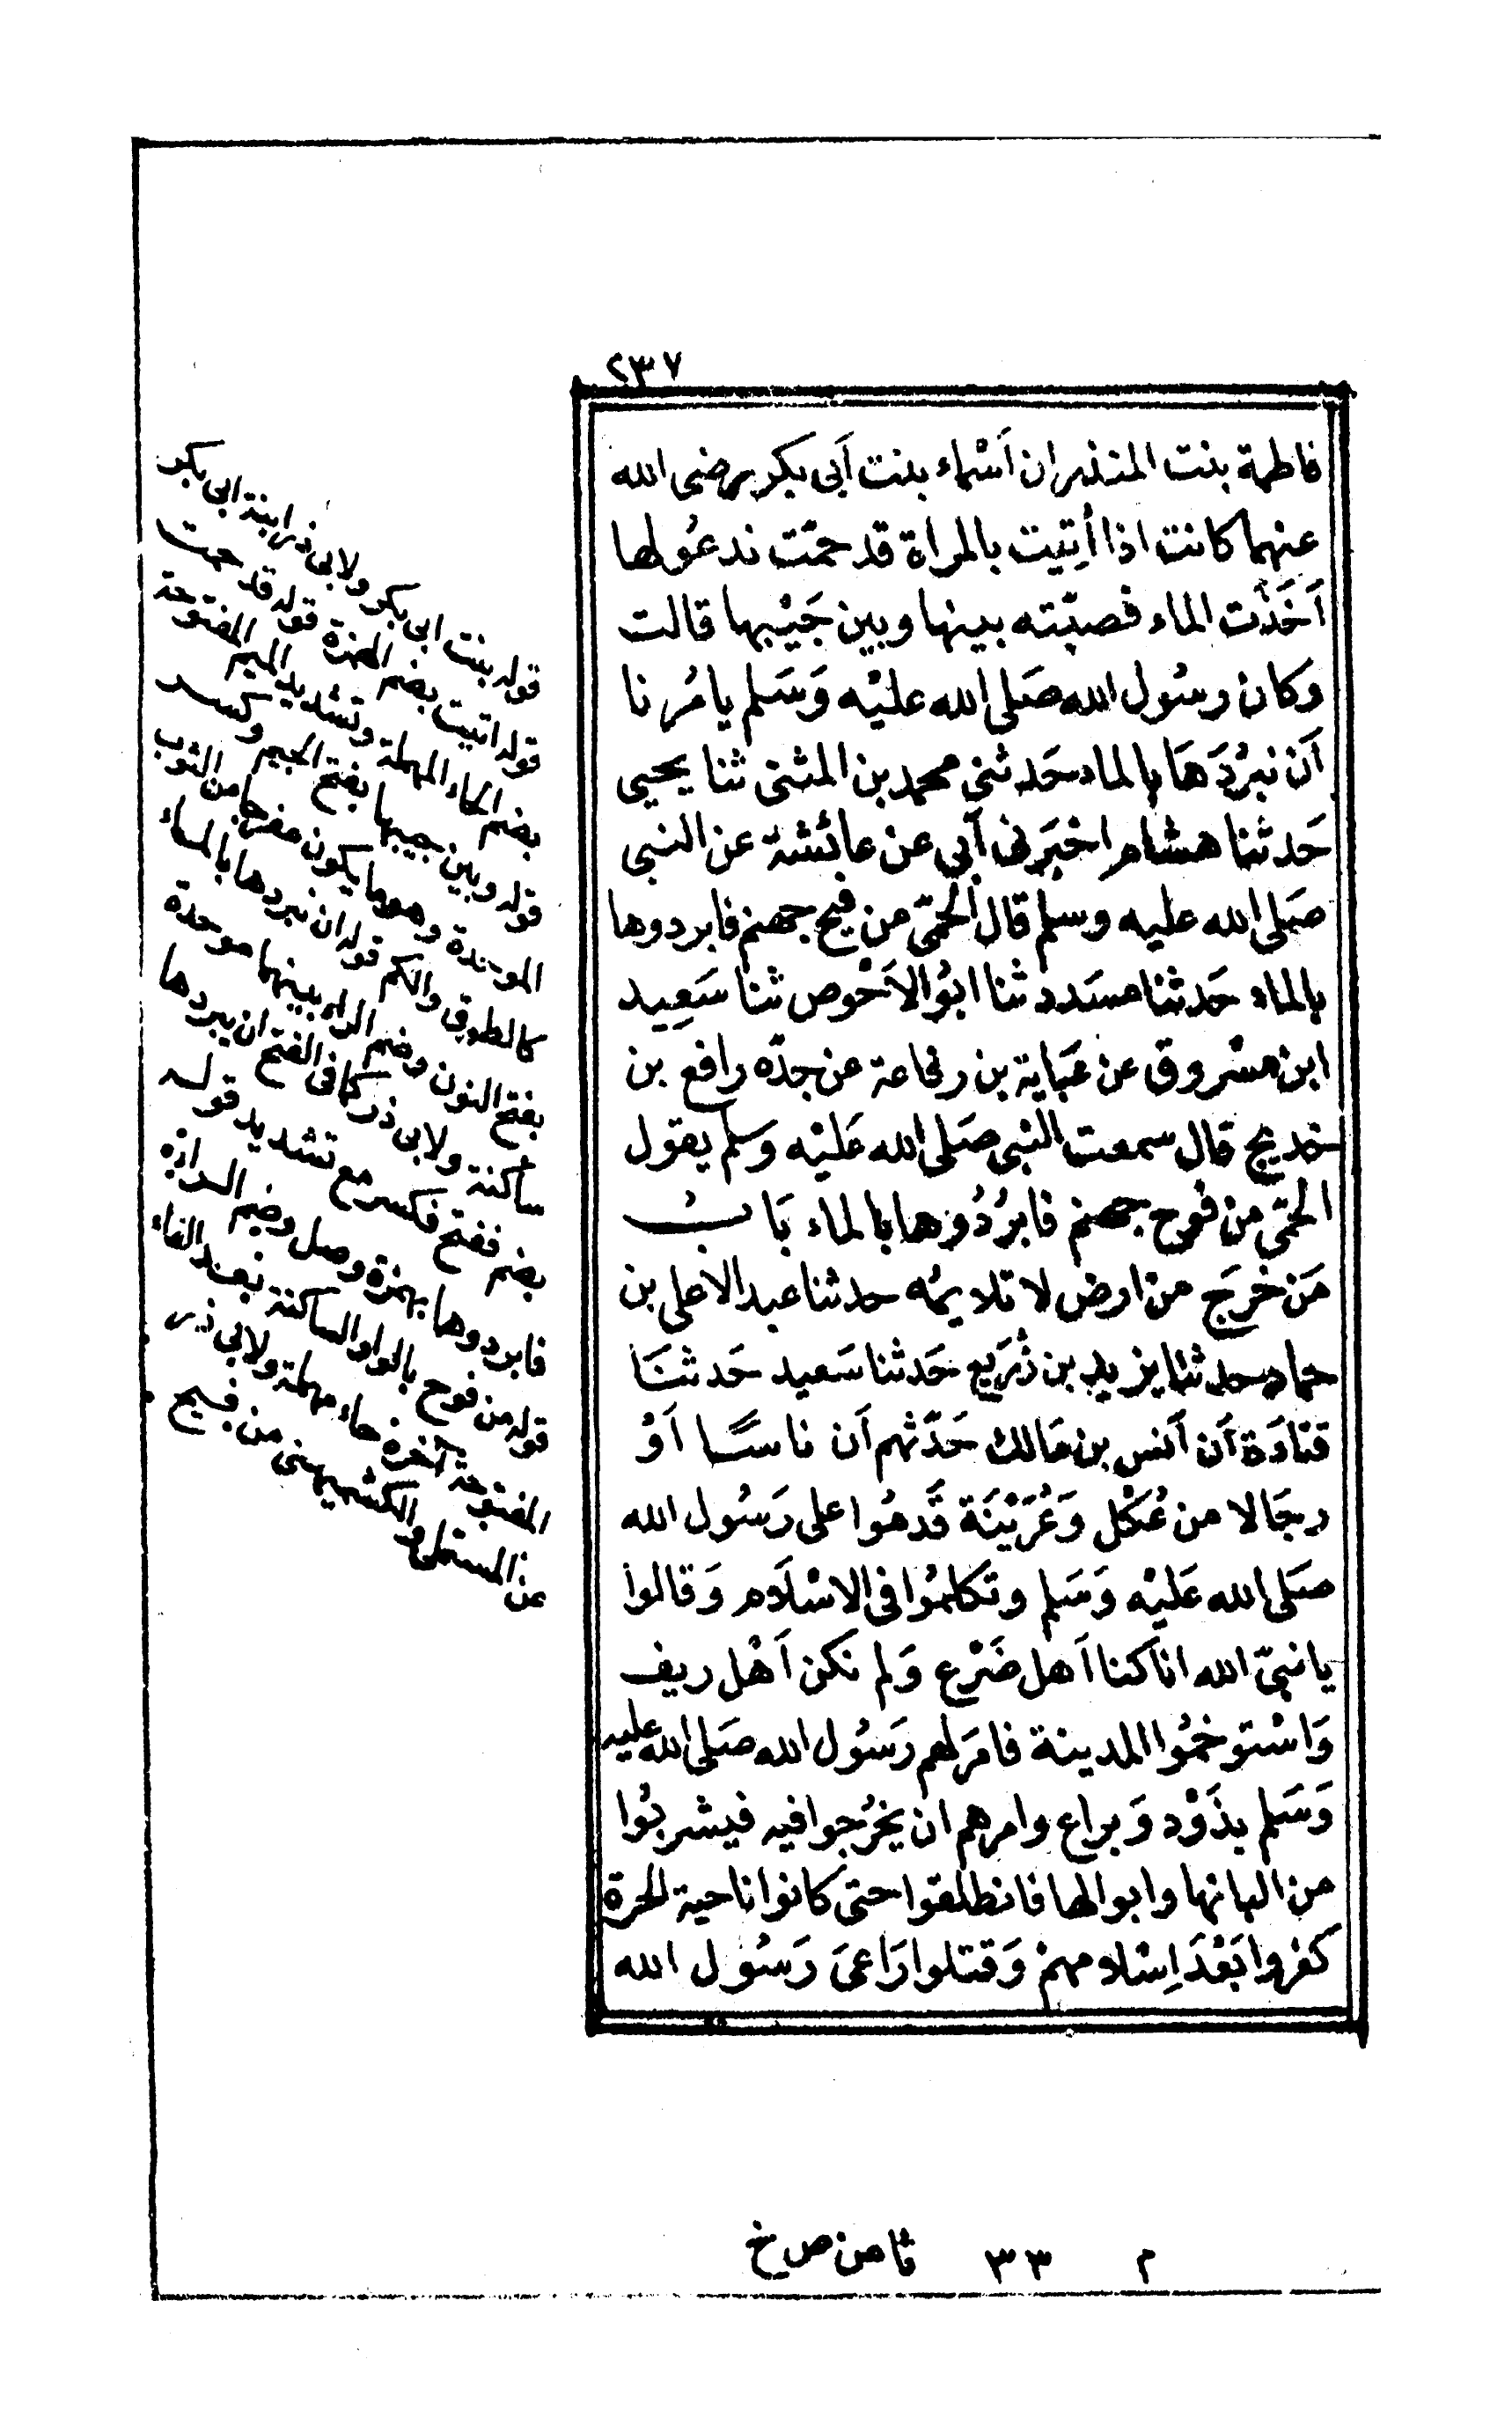 ٢٣٧
فاطمة بنت المنذر ان اَسْماء بنت اَبى بكر رضى الله
عنهما كانت اذا أُتِيت بالمراة قد حمّت تدعُولها
اَخَذَت الماء فصبّته بينها وبين جَيْبها قالت
وكان رسُول الله صَلى الله عليْه وَسَلم يامُرنا
اَن نبرُدَهَا بالماء حَدثنى محمد بن المثنى ثنا يحيى
حَدثنا هشام اخبَرنى اَبى عن عائشة عن النبى
صَلى الله عليه وسلم قال الحمّى من فيح جهنم فابردوها
بالماء حَدثنا مسَدد ثنا ابوُ الاَحْوص ثنا سَعِيد
ابن مسْروق عن عَباية بن رفاعة عن جدّه رافع بن
خديج قال سمعت النبى صَلى الله عَليْه وَسلم يقول
الحمّى من فوح جهنم فابرُدُوها بالماء بَابُ
مَن خرَج من ارض لا تلايمُه حدثنا عبد الاعلى بن
حماد حدثنا يزيد بن زُرَيع حَدثنا سَعيد حَدثنَا
قتادَة اَن اَنس بن مَالك حَدّثهم اَن ناسًا اَوْ
رجَالا من عُكْل وَعُرَيْنَة قَدمُوا على رَسُول الله
صَلى الله عَليْه وَسَلم وتكلموُا فى الاسْلَام وَقالوا
يا نبىّ الله انا كنا اَهل ضَرْع وَلم نكن اَهْل ريف
وَاسْتوخمُوا المدينة فامَر لهم رَسُول الله صَلى الله عليه
وَسَلم بذَوْد وَبراع وامرهم ان يخرُجوا فيه فيشربُوا
من البانها وابوالها فانطلقوا حتى كانوا ناحية الحرة
كفروا بَعْدَ اِسْلامهمْ وَقتلوا رَاعىَ رَسُول الله
قوله بنت ابى بكر ولابى ذر ابنة ابى بكر
قوله اتيت بضم الهمزة قوله قد حمت
بضم الحاء المهملة وتشديد الميم المفتوحة
قوله وبين جيبها بفتح الجيم وكسر
الموحدة وهو ما يكون مفرجا من الثوب
كالطوق والكم قوله ان نبردها بالماء
بفتح النون وضم الراء بينهما موحدة
ساكنة ولابى ذر كما فى الفتح ان نبردها
بضم ففتح فكسر مع تشديد قوله
فابردوها بهمزة وصل وضم الراء
قوله من فوح بالواو الساكنة بعد الفاء
المفتوحة آخره حاء مهملة ولابى ذر
عن المستملى والكشميهنى من فيح
م ٣٣ ثامن ص خ